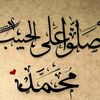 صلوا على الحبيب
محمد